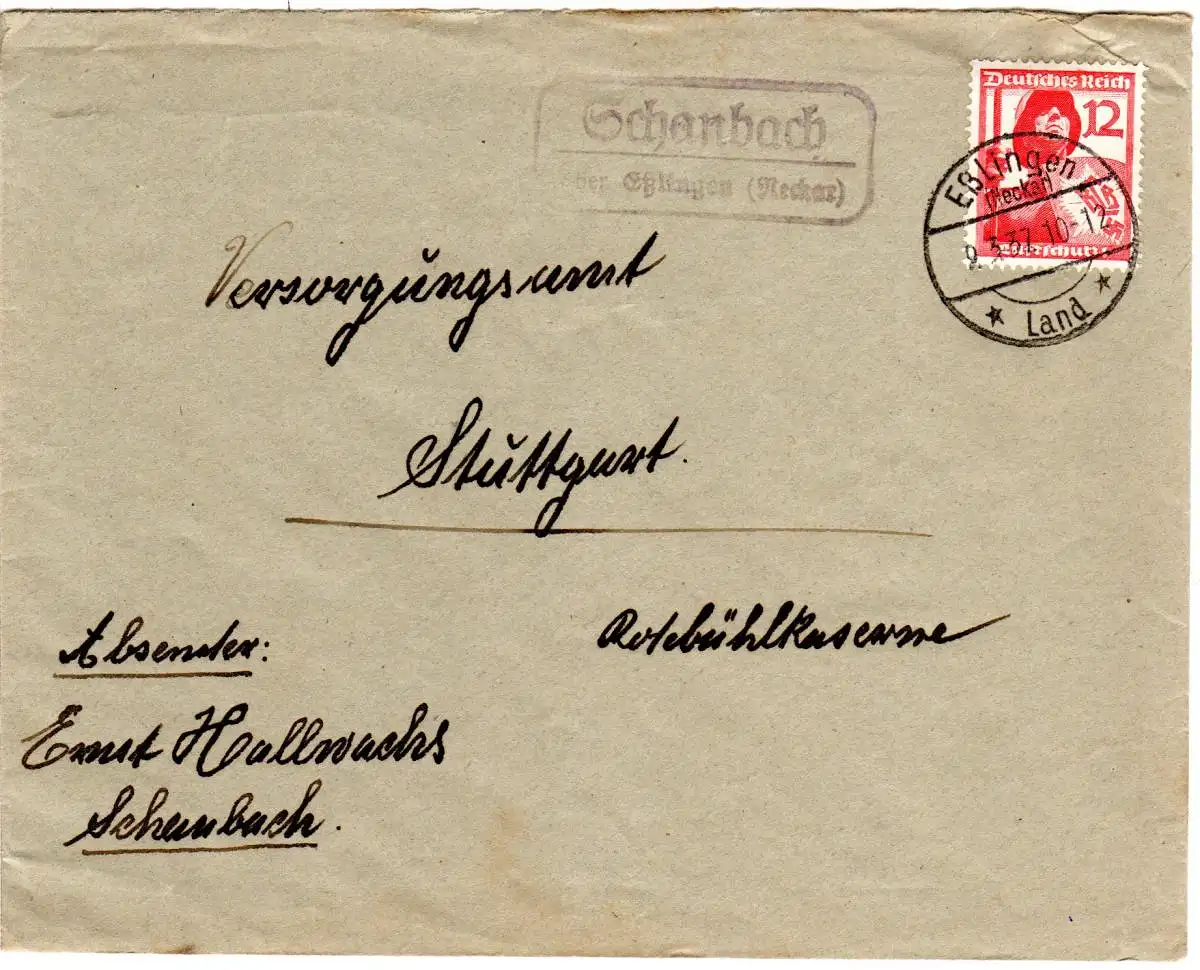 Schanbach
über Eßlingen (Neckar)
Deutsches Reich
12
Luftschutz
Eßlingen
(Neckar)
9.3.37.10-12
Land
Versorgungsamt
Stuttgart.
Rotebühlkaserne
Absender:
Ernst Hallwachs
Schanbach.